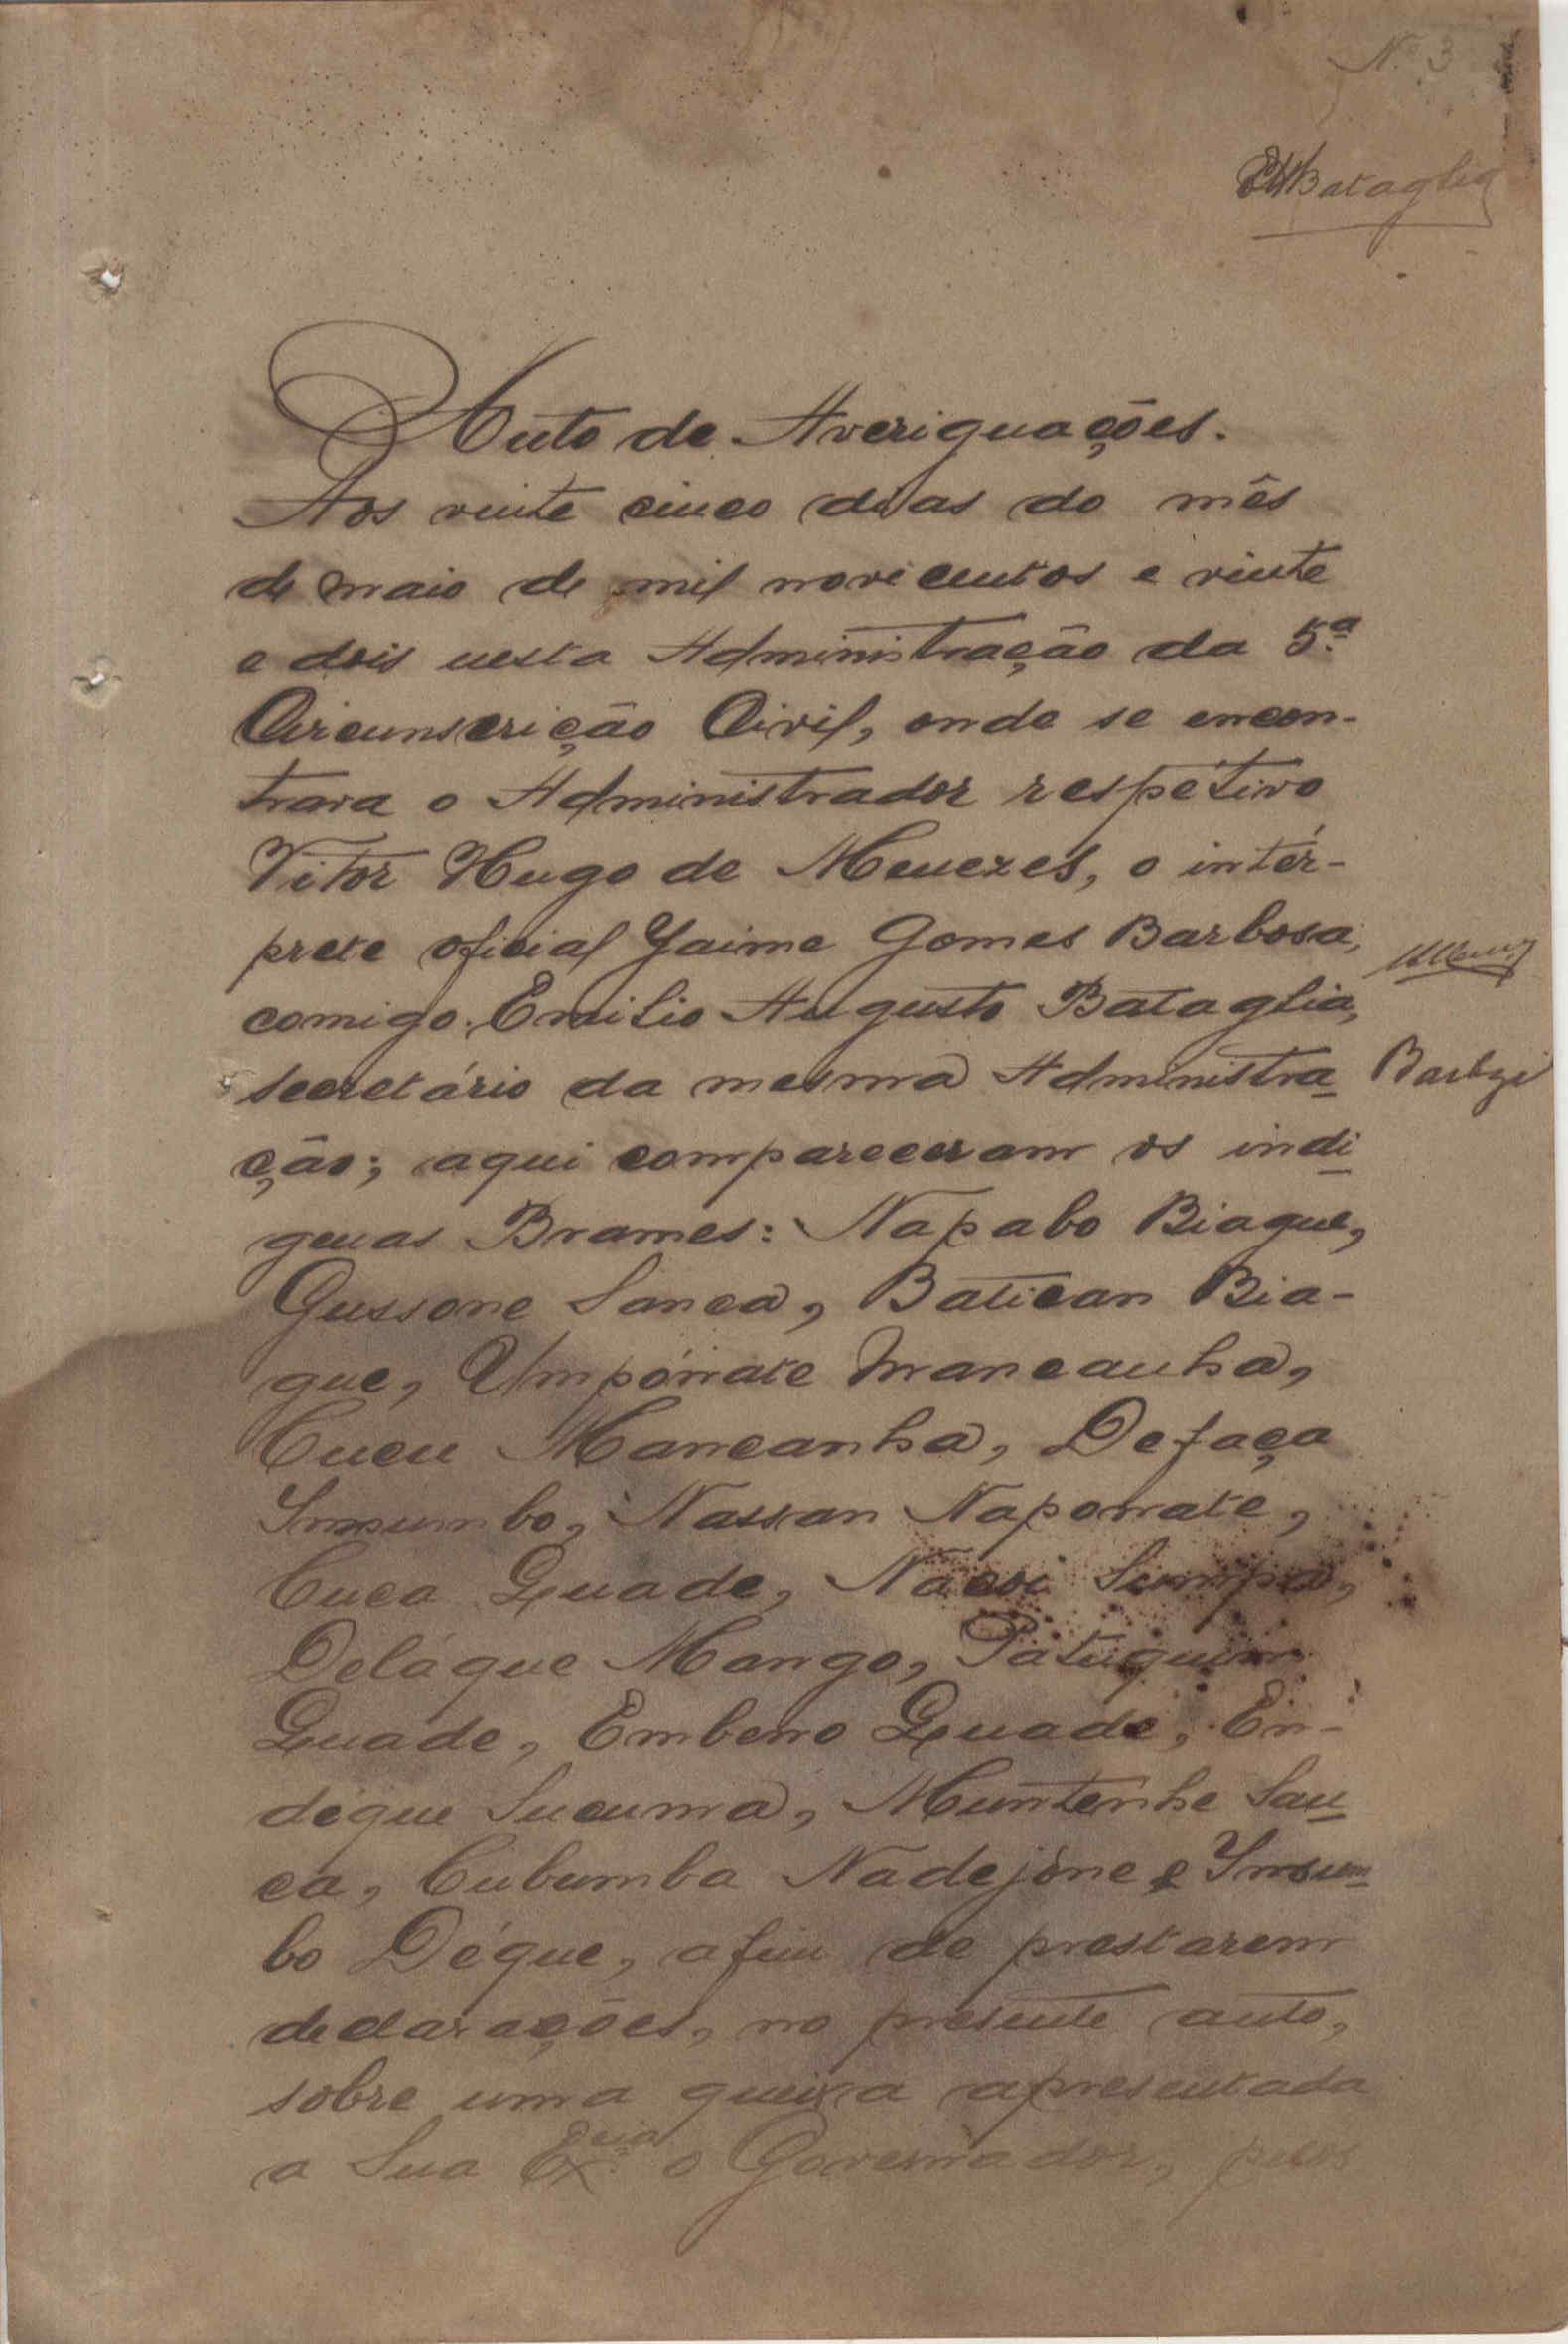 Nº 3
EABataglia
Auto de Averiguações.
Aos vinte cinco dias do mês
de maio de mil novicentos e vinte
e dois nesta Administração da 5.ª
Circunscrição Civil, onde se encon-
trava o Administrador respétivo
Vitor Hugo de Menezes, o intér-
prete oficial Jaime Gomes Barbosa,
comigo Emilio Augusto Bataglia,
secretário da mesma Administra-
ção; aqui compareceram os indi-
genas Brames: Napabo Biague,
Gussone Sanca, Batican Bia-
gue, Umpónate Mancanha,
Cucu Mancanha, Defaça
Insumbo, Nassan Naponate,
Cuca Quade, Sumpa,
Delágue Mango, Patuquim
Quade, Embeno Quade, En-
degue Sucuma, Muntenhe San-
ca, Cubumba Nadejóne e Insum-
bo Dégue, afim de prestarem
declarações, no presente auto,
sobre uma queixa apresentada
a Sua Ex.cia o Governador, pelos